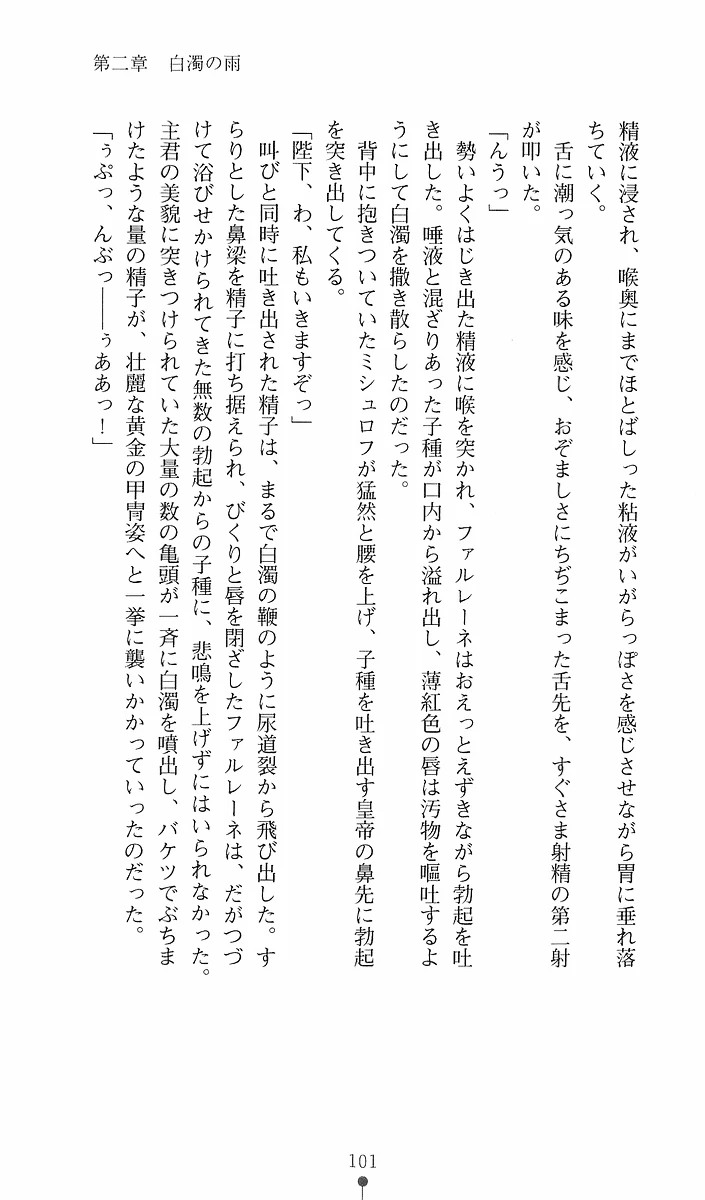 第二章　白濁の雨
精液に浸され、喉奥にまでほとばしった粘液がいがらっぽさを感じさせながら胃に垂れ落
ちていく。
　舌に潮っ気のある味を感じ、おぞましさにちぢこまった舌先を、すぐさま射精の第二射
が叩いた。
「んうっ」
　勢いよくはじき出た精液に喉を突かれ、ファルレーネはおえっとえずきながら勃起を吐
き出した。唾液と混ざりあった子種が口内から溢れ出し、薄紅色の唇は汚物を嘔吐するよ
うにして白濁を撒き散らしたのだった。
　背中に抱きついていたミシュロフが猛然と腰を上げ、子種を吐き出す皇帝の鼻先に勃起
を突き出してくる。
「陛下、わ、私もいきますぞっ」
　叫びと同時に吐き出された精子は、まるで白濁の鞭のように尿道裂から飛び出した。す
らりとした鼻梁を精子に打ち据えられ、びくりと唇を閉ざしたファルレーネは、だがつづ
けて浴びせかけられてきた無数の勃起からの子種に、悲鳴を上げずにはいられなかった。
主君の美貌に突きつけられていた大量の数の亀頭が一斉に白濁を噴出し、バケツでぶちま
けたような量の精子が、壮麗な黄金の甲冑姿へと一挙に襲いかかっていったのだった。
「ぅぷっ、んぶっ――ぅああっ！」
101